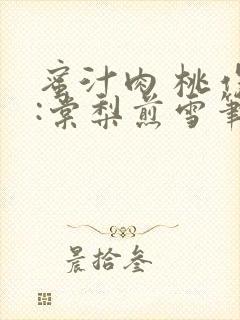 蜜汁肉桃
:棠梨煎雪笔
晨拾叁